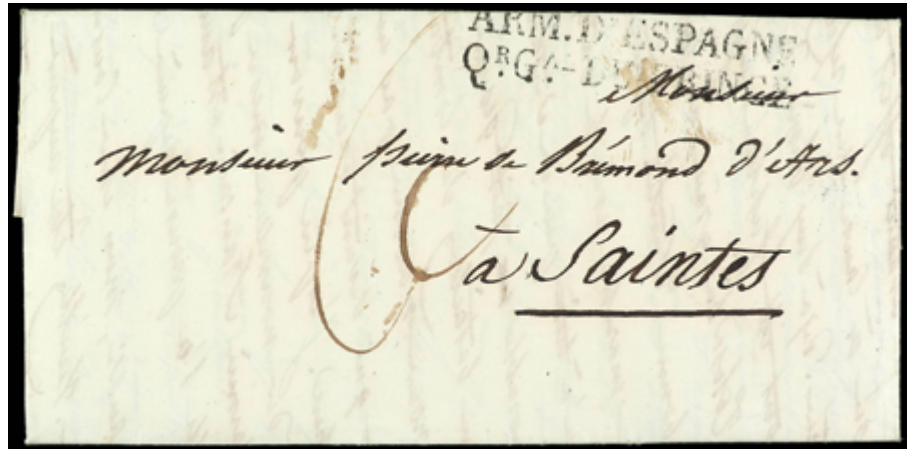 ARM. D'ESPAGNE
QR. GAL DU PRINCE
Monsieur
Monsieur pierre de Brémond d'Ars.
à Saintes